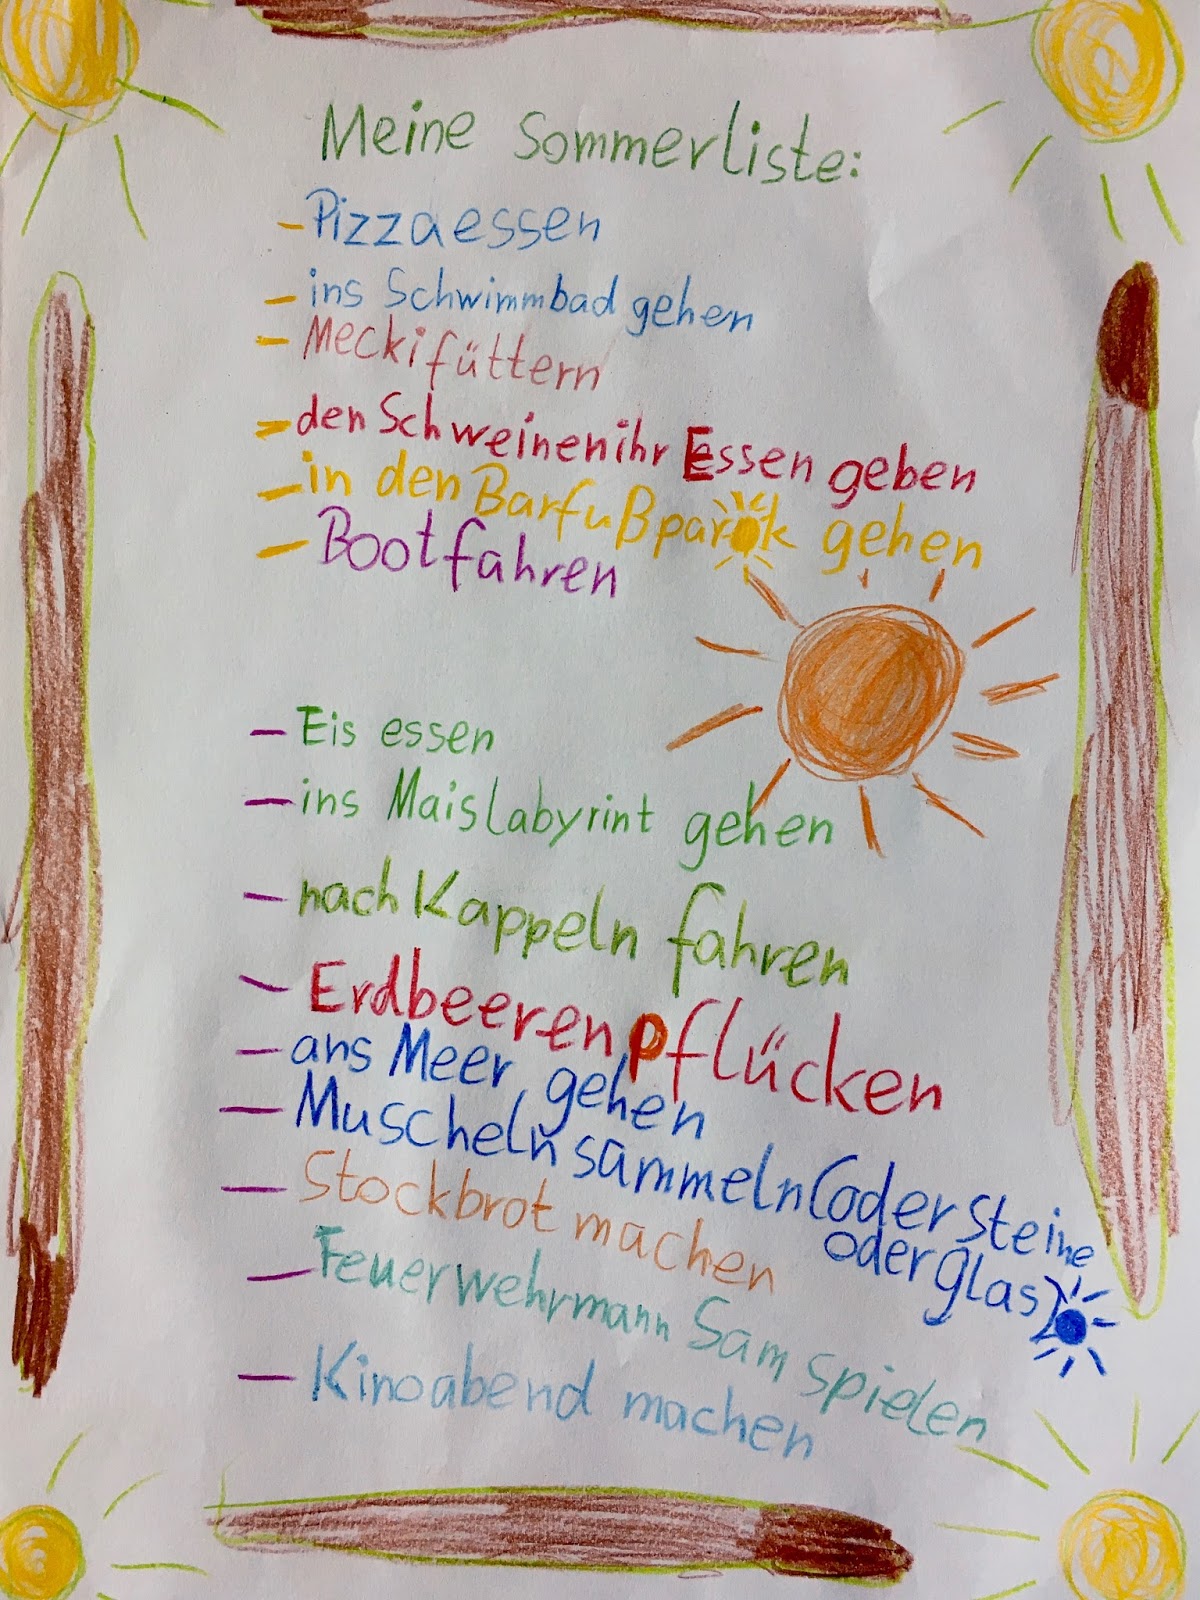 Meine Sommerliste:
- Pizza essen
- ins Schwimmbad gehen
- Mecki füttern
- den Schweinen ihr Essen geben
- in den Barfußpark gehen
- Boot fahren
- Eis essen
- ins Maislabyrint gehen
- nach Kappeln fahren
- Erdbeeren pflücken
- ans Meer gehen
- Muscheln sammeln (oder Steine
oder Glas)
- Stockbrot machen
- Feuerwehrmann Sam spielen
- Kinoabend machen